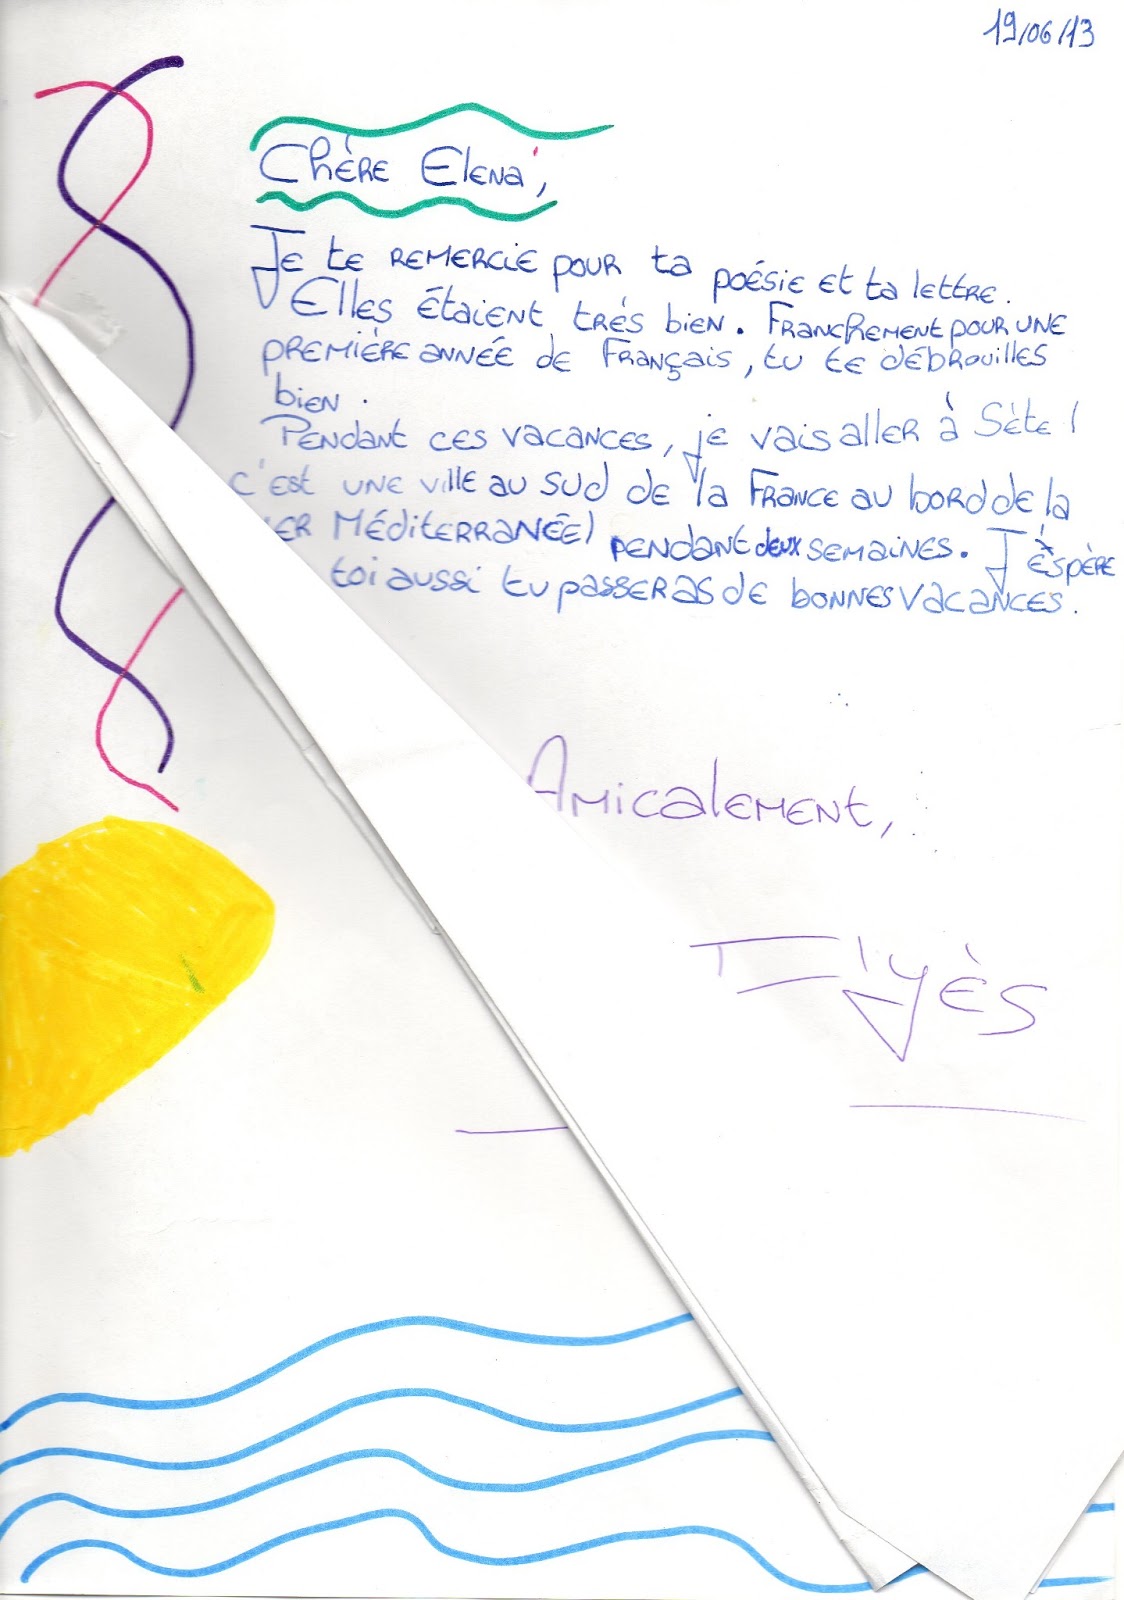 19/06/13
Chère Elena,
Je te remercie pour ta poésie et ta lettre.
Elles étaient trés bien. Franchement pour une
première année de Français, tu te débrouilles
bien.
Pendant ces vacances, je vais aller à Sète (
c'est une ville au sud de la France au bord de la
er Méditerranée) pendant deux semaines. J'éspère
toi aussi tu passeras de bonnes vacances.
Amicalement,
Ilyès